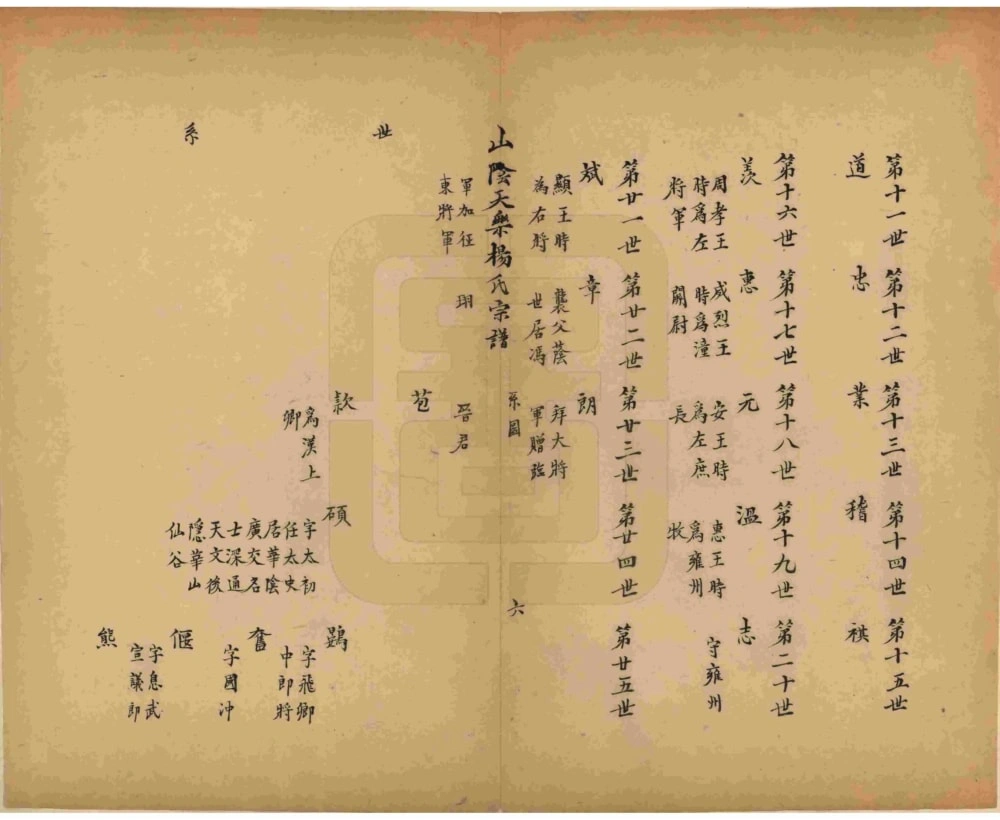 第十一世 第十二世 第十三世 第十四世 第十五世
道 忠 業 稽 祺
第十六世 第十七世 第十八世 第十九世 第二十世
羡 惠 元 溫 志
周孝王
時爲左
將軍
威烈王
時爲潼
關尉
安王時
爲左庶
長
惠王時
爲雍州
牧
守雍州
第廿一世 第廿二世 第廿三世 第廿四世 第廿五世
斌 章 朗
顯王時
為右將
軍加征
東將軍
襲父蔭
世居馮
翊
拜大將
軍贈臨
晉君
山陰天樂楊氏宗譜
系圖
六
苞
世
系
款
爲漢上
卿
碩
字太初
任太史
居華陰
廣交名
士深通
天文後
隱華山
仙谷
鷃
字飛卿
中郎將
奮
字國沖
偃
字息武
宣議郎
熊